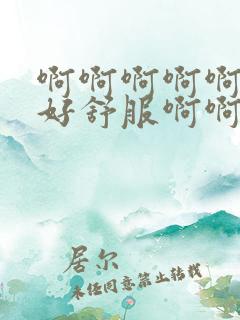 啊啊啊啊啊
好舒服啊啊
居尔
未经同意禁止转载